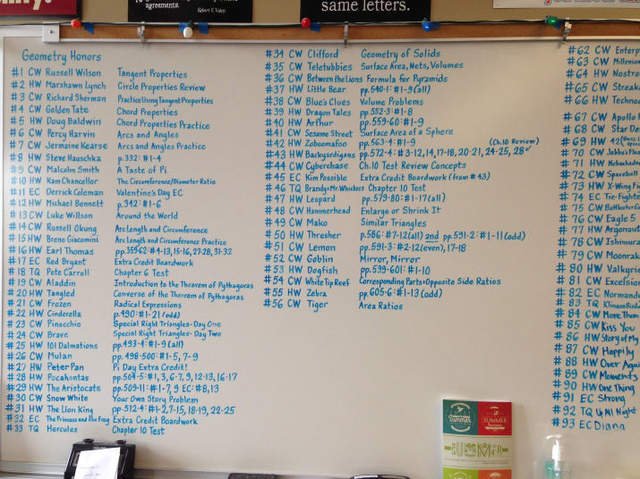 agreements.
same letters.
Geometry Honors
#1 CW Russell Wilson Tangent Properties
#2 HW Marshawn Lynch Circle Properties Review
#3 CW Richard Sherman Practice Using Tangent Properties
#4 CW Golden Tate Chord Properties
#5 HW Doug Baldwin Chord Properties Practice
#6 CW Percy Harvin Arcs and Angles
#7 CW Jermaine Kearse Arcs and Angles Practice
#8 HW Steve Hauschka p.332: #1-4
#9 CW Malcolm Smith A Taste of Pi
#10 HW Kam Chancellor The Circumference/Diameter Ratio
#11 EC Derrick Coleman Valentine's Day EC
#12 HW Michael Bennett p.342: #1-6
#13 CW Luke Willson Around the World
#14 CW Russell Okung Arc Length and Circumference
#15 HW Breno Giacomini Arc Length and Circumference Practice
#16 HW Earl Thomas #4-13, 15-16, 27-28, 31-32
#17 EC Red Bryant Extra Credit Boardwork
#18 TQ Pete Carroll Chapter 6 Test
#19 CW Aladdin Introduction to the Theorem of Pythagoras
#20 HW Tangled Converse of the Theorem of Pythagoras
#21 CW Frozen Radical Expressions
#22 HW Cinderella p.490: #1-21 (odd)
#23 CW Pinocchio Special Right Triangles-Day One
#24 CW Brave Special Right Triangles-Day Two
#25 HW 101 Dalmations pp.493-4: #1-9 (all)
#26 CW Mulan pp. 498-500: #1-5, 7-9
#27 HW Peter Pan Pi Day Extra Credit!
#28 HW Pocahontas pp.504-5: #1, 3, 6-7, 9, 12-13, 16-17
#29 HW The Aristocats pp.509-11: #1-7, 9 EC: #8, 13
#30 CW Snow White Your Own Story Problem
#31 HW The Lion King pp.512-4: #1-2, 7-15, 18-19, 22-25
#32 EC The Princess and the Frog Extra Credit Boardwork
#33 TQ Hercules Chapter 10 Test
#34 CW Clifford Geometry of Solids
#35 CW Teletubbies Surface Area, Nets, Volumes
#36 CW Between the Lions Formula for Pyramids
#37 HW Little Bear pp.540-1: #1-9 (all)
#38 CW Blue's Clues Volume Problems
#39 HW Dragon Tales pp.552-3: #1-8
#40 HW Arthur pp.559-60: #1-9
#41 CW Sesame Street Surface Area of a Sphere
#42 HW Zoboomafoo pp.563-4: #1-9 (Ch.10 Review)
#43 HW Backyardigans pp.572-4: #3-12, 14, 17-18, 20-21, 24-25, 28
#44 CW Cyberchase Ch.10 Test Review Concepts
#45 EC Kim Possible Extra Credit Boardwork (from #43)
#46 TQ Brandy + Mr. Whiskers Chapter 10 Test
#47 HW Leopard pp.579-80: #1-17 (all)
#48 CW Hammerhead Enlarge or Shrink It
#49 CW Mako Similar Triangles
#50 HW Thresher p.586: #7-12 (all) and pp.591-2: #1-11 (odd)
#51 CW Lemon pp.591-3: #2-12 (even), 17-18
#52 CW Goblin Mirror, Mirror
#53 HW Dogfish pp.539-601: #1-10
#54 CW White Tip Reef Corresponding Parts + Opposite Side Ratios
#55 HW Zebra pp.605-6: #1-13 (odd)
#56 CW Tiger Area Ratios
#62 CW Enterp
#63 CW
#64 HW Nostro
#65 CW Streak
#66 HW
#67 CW Apollo
#68 CW Star
#69 HW 42
#70 CW Jabba's
#71 HW
#72 CW Spaceball
#73 HW X-Wing
#74 EC Tie-Fighter
#75 CW
#76 CW Eagle 5
#77 HW Argonaut
#78 CW Ishimura
#79 CW Moonrak
#80 HW Valkyri
#81 CW Excelsior
#82 EC Normandy
#83 TQ
#84 CW More Than
#85 CW Kiss You
#86 HW Story of My
#87 CW Happily
#88 HW Over Again
#89 CW Moments
#90 HW One Thing
#91 EC Strong
#92 TQ Up All Night
#93 EC Diana